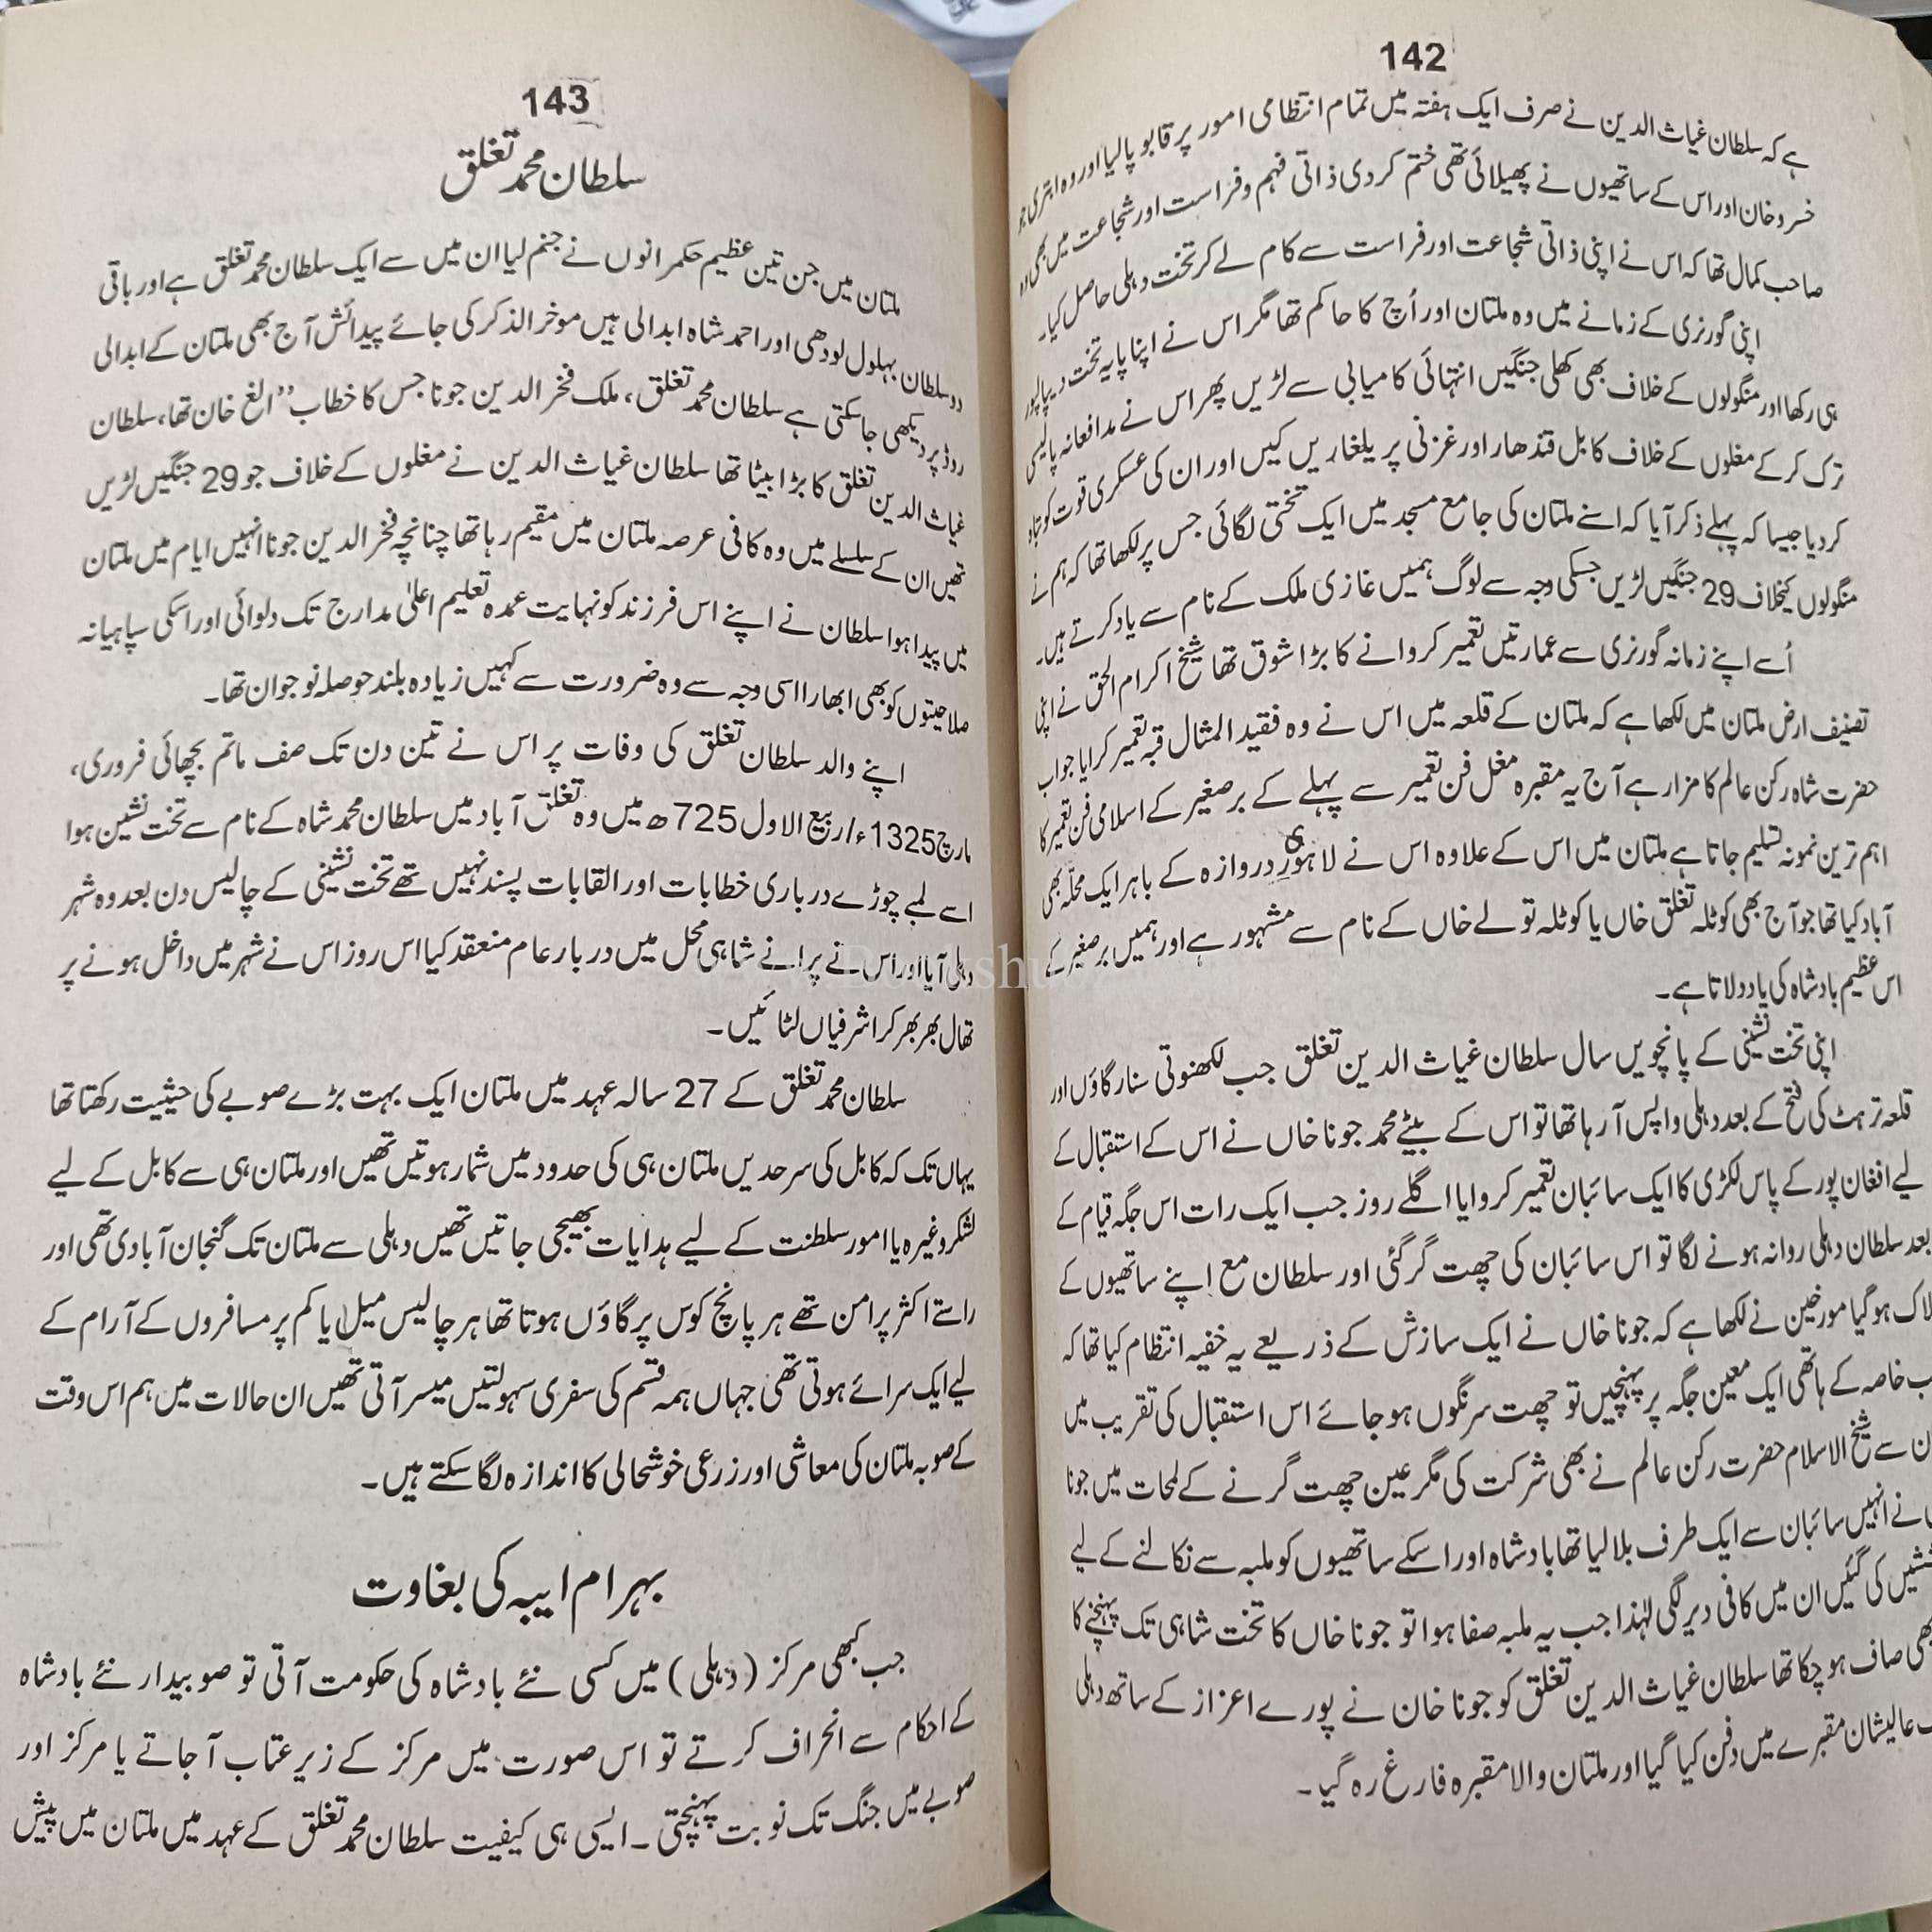 142
ہے کہ سلطان غیاث الدین نے صرف ایک ہفتہ میں تمام انتظامی امور پر قابو پالیا اور وہ ابتری جو
خسرو خان اور اس کے ساتھیوں نے پھیلائی تھی ختم کر دی ذاتی فہم و فراست اور شجاعت میں بھی وہ
صاحب کمال تھا کہ اس نے اپنی ذاتی شجاعت اور فراست سے کام لے کر تخت دہلی حاصل کیا۔
اپنی گورنری کے زمانے میں وہ ملتان اور اُچ کا حاکم تھا مگر اس نے اپنا پایہ تخت دیپالپور
ہی رکھا اور منگولوں کے خلاف بھی کھلی جنگیں انتہائی کامیابی سے لڑیں پھر اس نے مدافعانہ پالیسی
ترک کر کے مغلوں کے خلاف کابل قندھار اور غزنی پر یلغاریں کیں اور ان کی عسکری قوت کو تباہ
کر دیا جیسا کہ پہلے ذکر آیا کہ اسنے ملتان کی جامع مسجد میں ایک تختی لگائی جس پر لکھا تھا کہ ہم نے
منگولوں کیخلاف 29 جنگیں لڑیں جسکی وجہ سے لوگ ہمیں غازی ملک کے نام سے یاد کرتے ہیں۔
اُسے اپنے زمانہ گورنری سے عمارتیں تعمیر کروانے کا بڑا شوق تھا شیخ اکرام الحق نے اپنی
تصنیف ارض ملتان میں لکھا ہے کہ ملتان کے قلعہ میں اس نے وہ فقید المثال قبہ تعمیر کرایا جو اب
حضرت شاہ رکن عالم کا مزار ہے آج یہ مقبرہ مغل فن تعمیر سے پہلے کے برصغیر کے اسلامی فن تعمیر کا
اہم ترین نمونہ تسلیم جاتا ہے ملتان میں اس کے علاوہ اس نے لاہوری دروازہ کے باہر ایک محلّہ بھی
آباد کیا تھا جو آج بھی کوٹلہ تغلق خاں یا کوٹلہ تولے خاں کے نام سے مشہور ہے اور ہمیں برصغیر کے
اس عظیم بادشاہ کی یاد دلاتا ہے۔
اپنی تخت نشینی کے پانچویں سال سلطان غیاث الدین تغلق جب لکھنوتی سنارگاؤں اور
قلعہ ترہٹ کی فتح کے بعد دہلی واپس آ رہا تھا تو اس کے بیٹے محمد جونا خاں نے اس کے استقبال کے
لیے افغان پور کے پاس لکڑی کا ایک سائبان تعمیر کروایا اگلے روز جب ایک رات اس جگہ قیام کے
بعد سلطان دہلی روانہ ہونے لگا تو اس سائبان کی چھت گر گئی اور سلطان مع اپنے ساتھیوں کے
ہلاک ہو گیا مورخین نے لکھا ہے کہ جونا خاں نے ایک سازش کے ذریعے یہ خفیہ انتظام کیا تھا کہ
خاصہ کے ہاتھی ایک معین جگہ پر پہنچیں تو چھت سرنگوں ہو جائے اس استقبال کی تقریب میں
سے شیخ الاسلام حضرت رکن عالم نے بھی شرکت کی مگر عین چھت گرنے کے لمحات میں جونا
نے انہیں سائبان سے ایک طرف بلا لیا تھا بادشاہ اور اسکے ساتھیوں کو ملبہ سے نکالنے کے لیے
کی گئیں ان میں کافی دیر لگی لہٰذا جب یہ ملبہ صفا ہوا تو جونا خاں کا تخت شاہی تک پہنچنے کا
بھی صاف ہو چکا تھا سلطان غیاث الدین تغلق کو جونا خان نے پورے اعزاز کے ساتھ دہلی
عالیشان مقبرے میں دفن کیا گیا اور ملتان والا مقبرہ فارغ رہ گیا۔
143
سلطان محمد تغلق
ملتان میں جن تین عظیم حکمرانوں نے جنم لیا ان میں سے ایک سلطان محمد تغلق ہے اور باقی
دو سلطان بہلول لودھی اور احمد شاہ ابدالی ہیں موخر الذکر کی جائے پیدائش آج بھی ملتان کے ابدالی
روڈ پر دیکھی جا سکتی ہے سلطان محمد تغلق، ملک فخر الدین جونا جس کا خطاب ”الغ خان تھا، سلطان
غیاث الدین تغلق کا بڑا بیٹا تھا سلطان غیاث الدین نے مغلوں کے خلاف جو 29 جنگیں لڑیں
تھیں ان کے سلسلے میں وہ کافی عرصہ ملتان میں مقیم رہا تھا چنانچہ فخر الدین جونا انہیں ایام میں ملتان
میں پیدا ہوا سلطان نے اپنے اس فرزند کو نہایت عمدہ تعلیم اعلیٰ مدارج تک دلوائی اور اسکی سپاہیانہ
صلاحیتوں کو بھی ابھارا اسی وجہ سے وہ ضرورت سے کہیں زیادہ بلند حوصلہ نوجوان تھا۔
اپنے والد سلطان تغلق کی وفات پر اس نے تین دن تک صف ماتم بچھائی فروری،
مارچ 1325ء/ربیع الاول 725ھ میں وہ تغلق آباد میں سلطان محمد شاہ کے نام سے تخت نشین ہوا
اسے لمبے چوڑے درباری خطابات اور القابات پسند نہیں تھے تخت نشینی کے چالیس دن بعد وہ شہر
دہلی آیا اور اس نے پرانے شاہی محل میں دربار عام منعقد کیا اس روز اس نے شہر میں داخل ہونے پر
تھال بھر بھر کر اشرفیاں لٹائیں۔
سلطان محمد تغلق کے 27 سالہ عہد میں ملتان ایک بہت بڑے صوبے کی حیثیت رکھتا تھا
یہاں تک کہ کابل کی سرحدیں ملتان ہی کی حدود میں شمار ہوتیں تھیں اور ملتان ہی سے کابل کے لیے
لشکر وغیرہ یا امور سلطنت کے لیے ہدایات بھیجی جاتیں تھیں دہلی سے ملتان تک گنجان آبادی تھی اور
راستے اکثر پر امن تھے ہر پانچ کوس پر گاؤں ہوتا تھا ہر چالیس میل یا کم پر مسافروں کے آرام کے
لیے ایک سرائے ہوتی تھی جہاں ہمہ قسم کی سفری سہولتیں میسر آتی تھیں ان حالات میں ہم اس وقت
کے صوبہ ملتان کی معاشی اور زرعی خوشحالی کا اندازہ لگا سکتے ہیں۔
بہرام ایبہ کی بغاوت
جب کبھی مرکز (دہلی) میں کسی نئے بادشاہ کی حکومت آتی تو صوبیدار نئے بادشاہ
کے احکام سے انحراف کرتے تو اس صورت میں مرکز کے زیر عتاب آ جاتے یا مرکز اور
صوبے میں جنگ تک نوبت پہنچتی۔ ایسی ہی کیفیت سلطان محمد تغلق کے عہد میں ملتان میں پیش